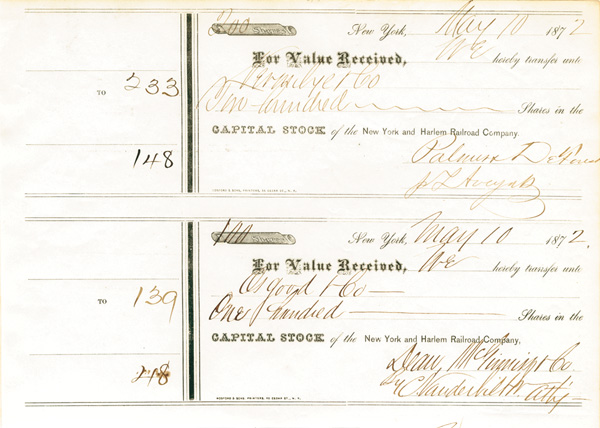 200 Shares New York, May 10 1872
For Value Received, We hereby transfer unto
TO 233 Vermilye & Co
Two Hundred Shares in the
CAPITAL STOCK of the New York and Harlem Railroad Company.
148
100 Shares New York, May 10 1872.
For Value Received, We hereby transfer unto
Osgood & Co
TO 139 One Hundred Shares in the
CAPITAL STOCK of the New York and Harlem Railroad Company,
248
C Vanderbilt Atty